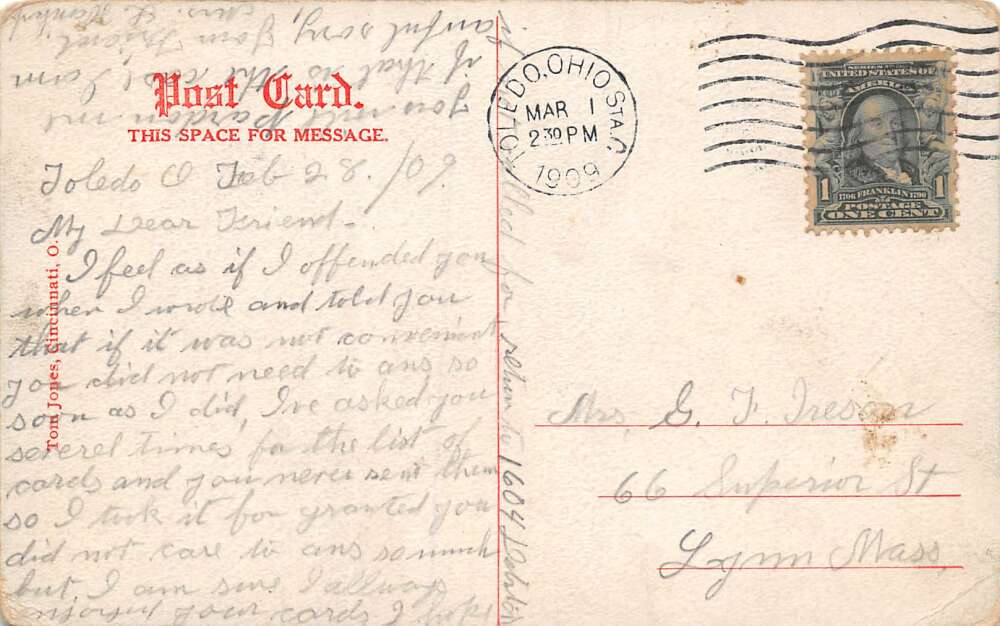 Post Card.
THIS SPACE FOR MESSAGE.
Toledo O Feb 28, /09.
My Dear Friend -
I feel as if I offended you
when I wrote and told you
that if it was not convenient
you did not need to ans so
soon as I did, I've asked you
severel times for the list of
cards and you never sent them
so I took it for granted you
did not care to ans so much
but, I am sure I allways
enjoyed your cards I hope
you will pardon me
if that is the case, I am
awful sorry Your Friend,
Mrs. L
if
for return to 1604
Tom Jones, Cincinnati, O.
TOLEDO, OHIO STA. C
MAR 1
2 30 PM
1909
SERIES 1902
UNITED STATES OF
AMERICA
1 1
1706 FRANKLIN 1790
POSTAGE
ONE CENT
Mrs. G. F. Ireson
66 Superior St
Lynn Mass.